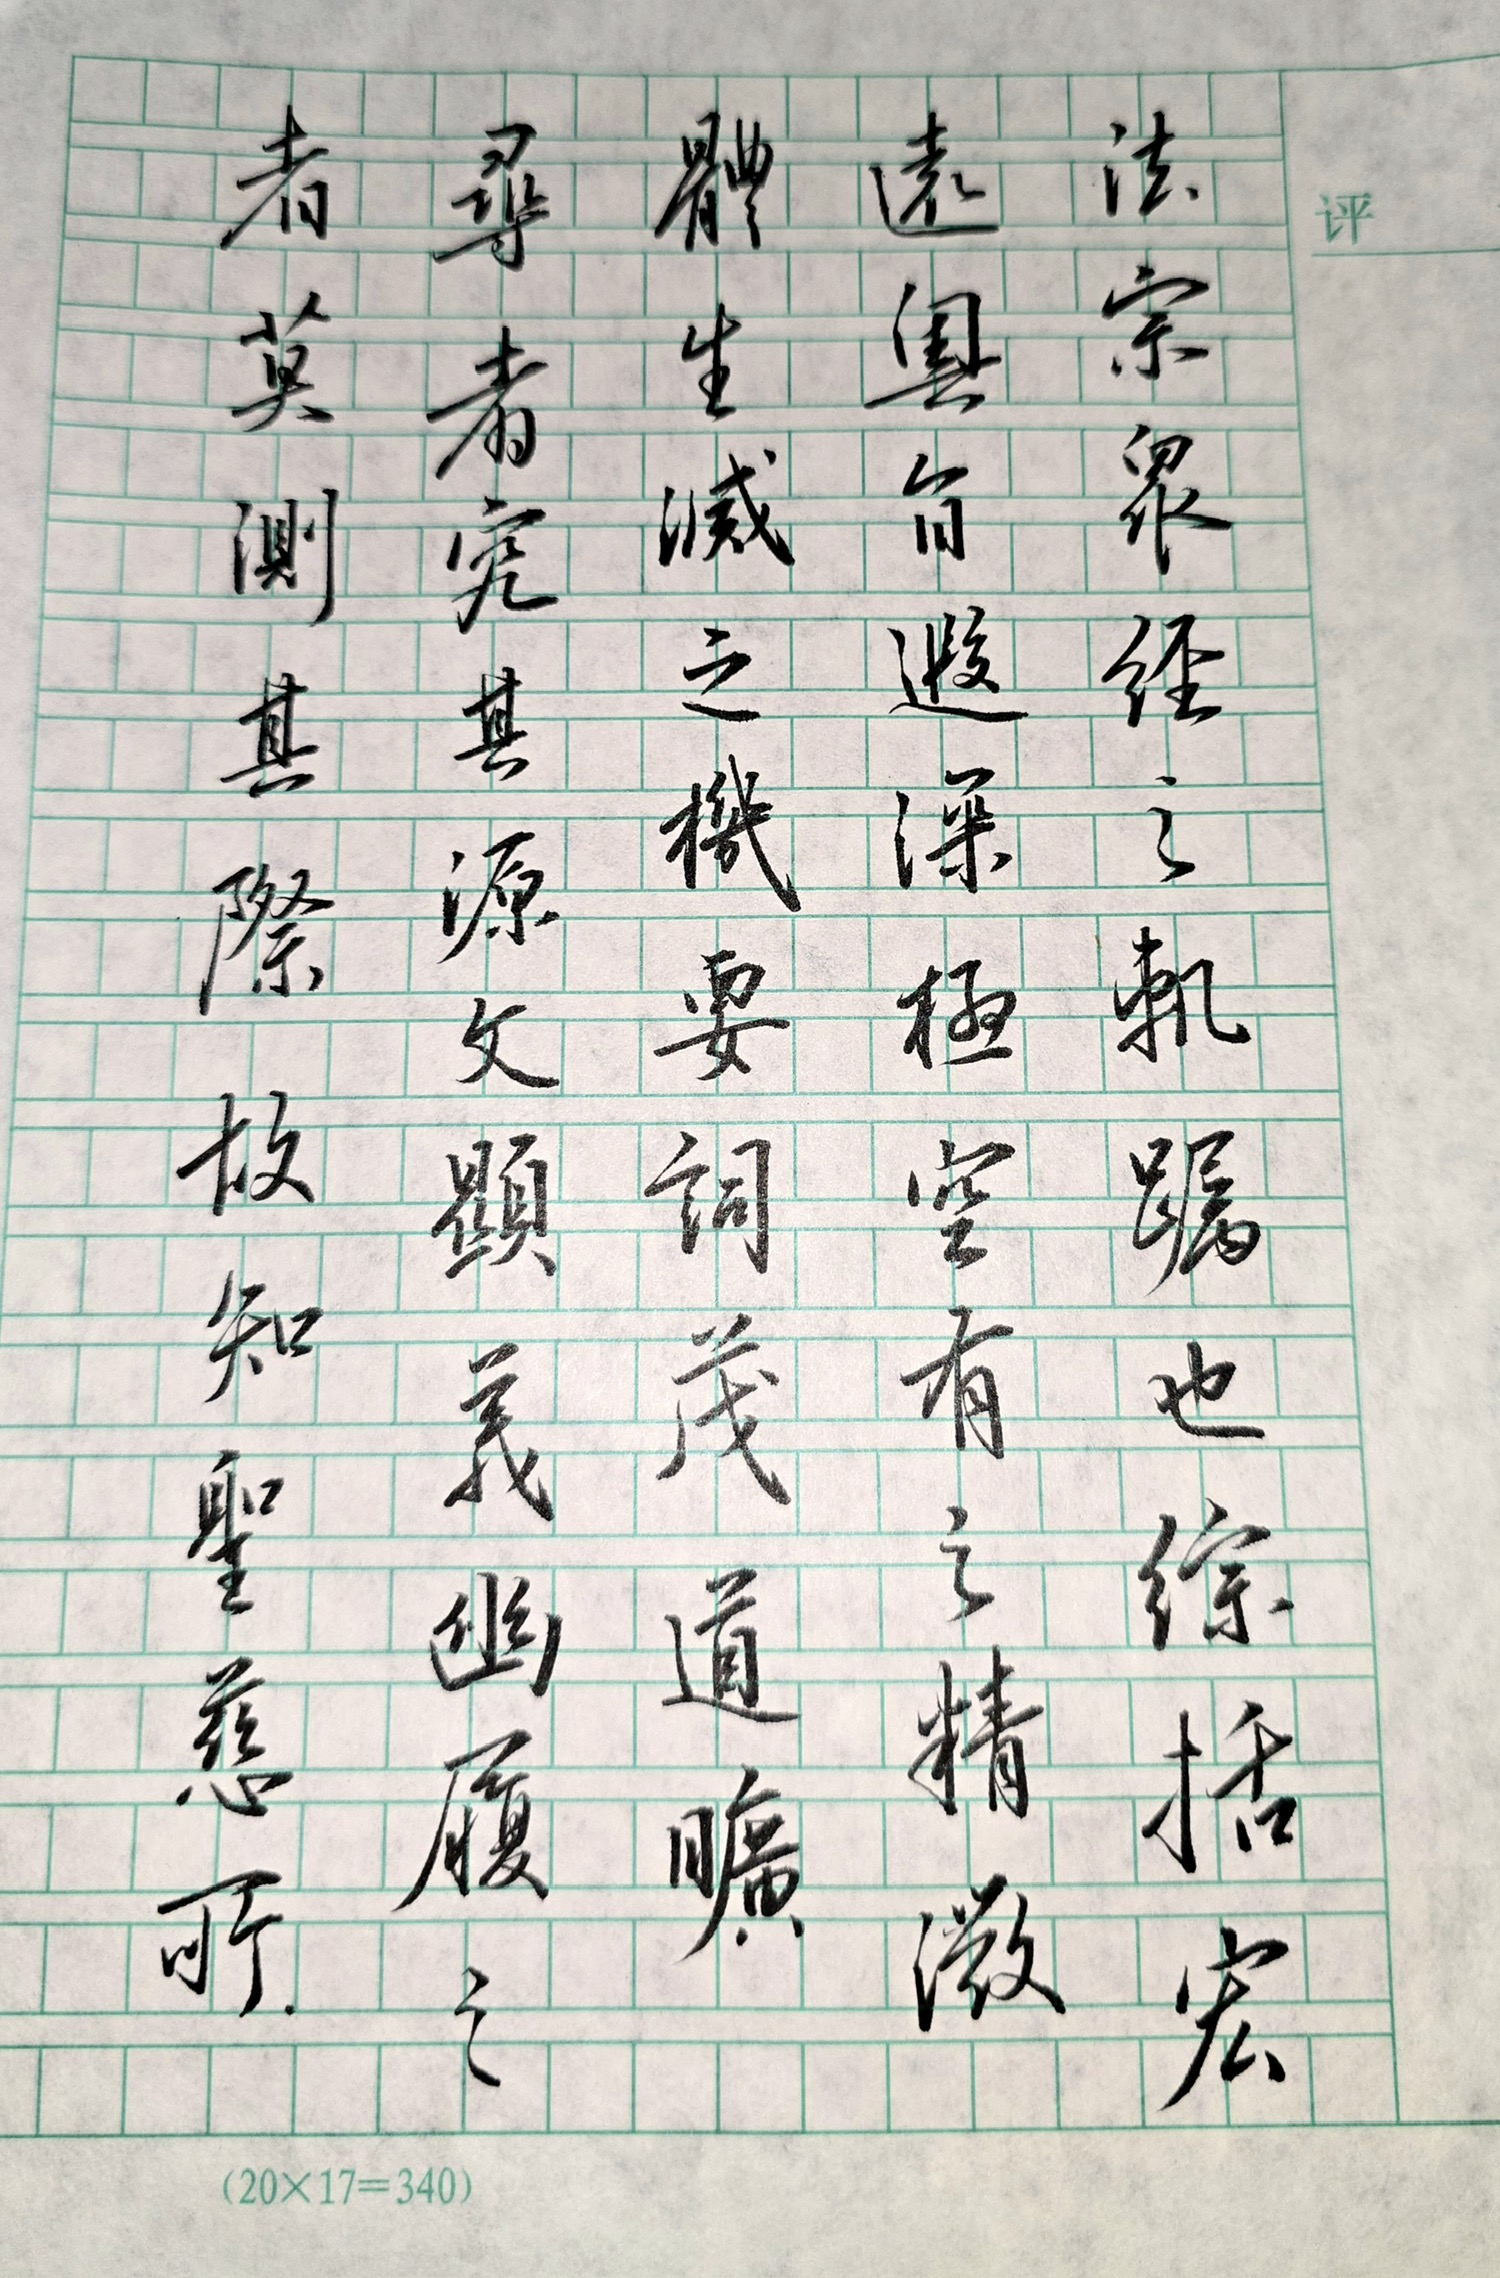 法宗眾經之軌躅也綜括宏
遠奧旨遐深極空有之精微
體生滅之機要詞茂道曠
尋者究其源文顯義幽履之
者莫測其際故知聖慈所
评
(20×17=340)